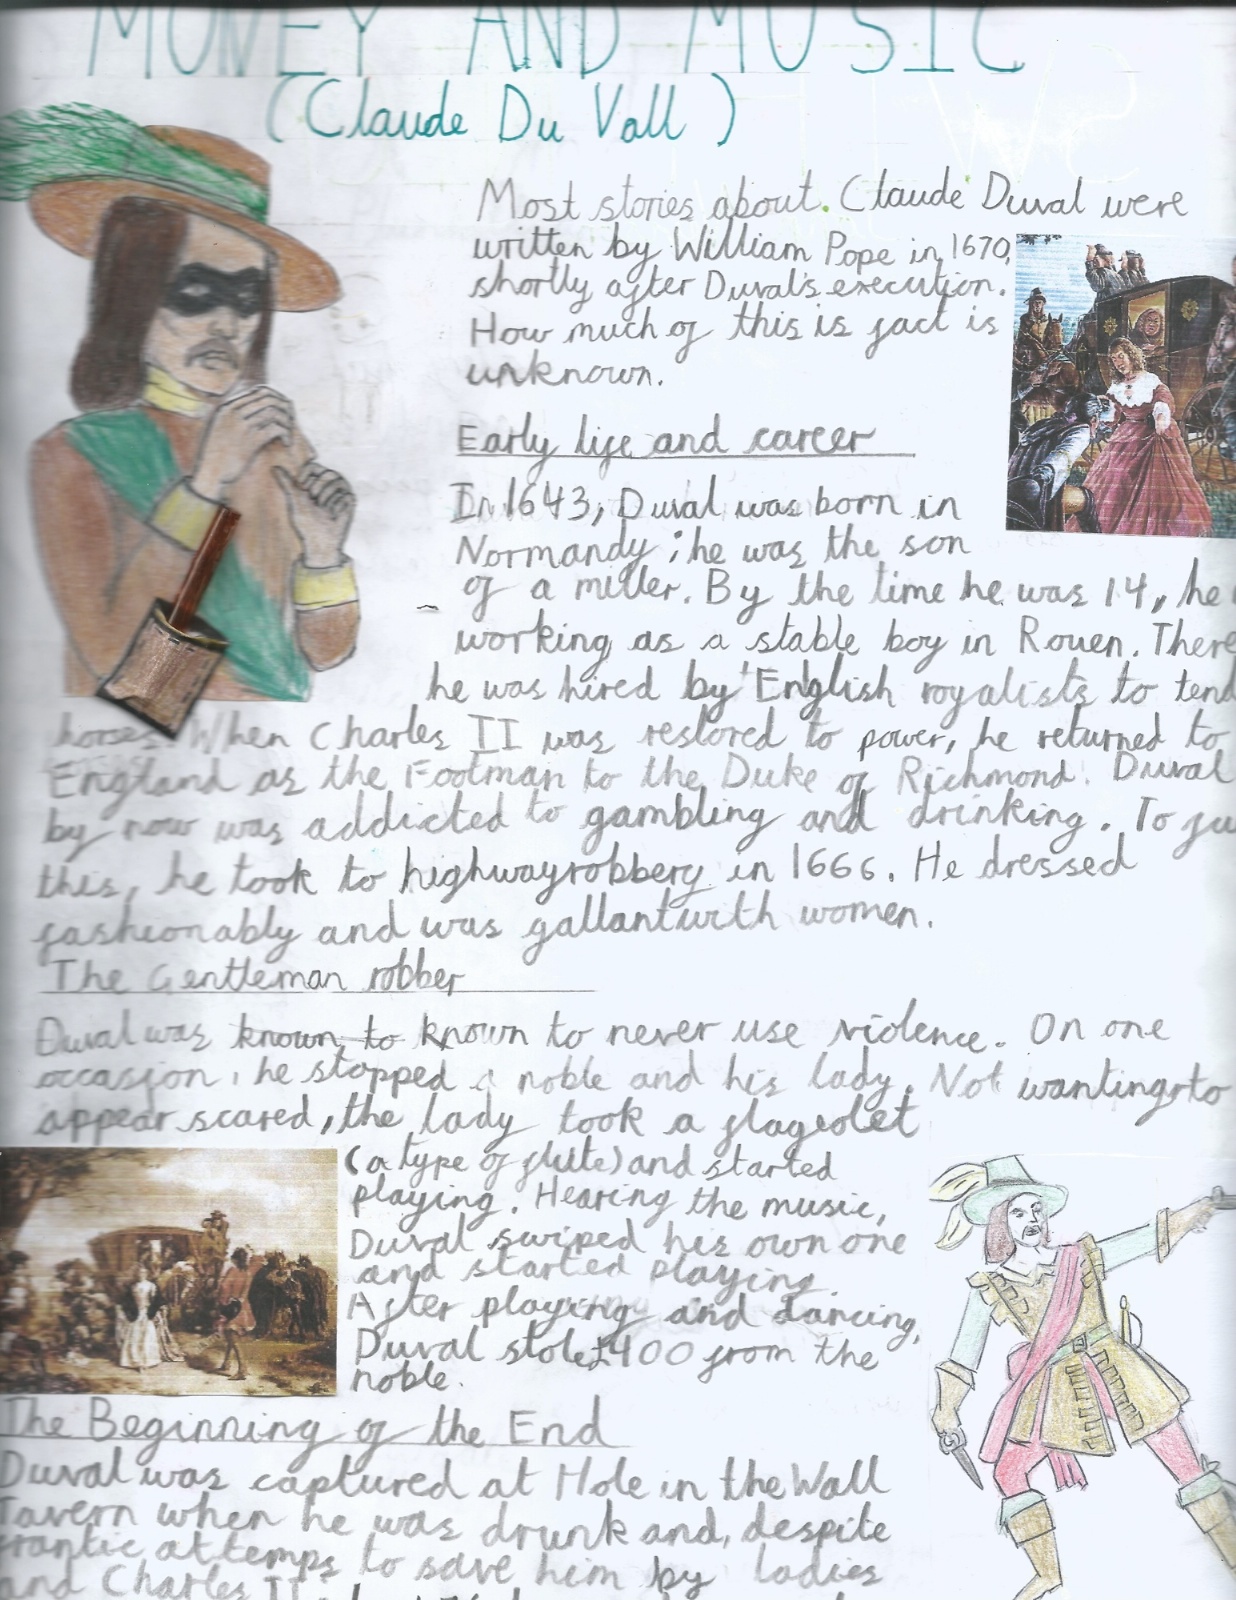 MONEY AND MUSIC
(Claude Du Vall)
Most stories about Claude Duval were
written by William Pope in 1670,
shortly after Duval's execution.
How much of this is fact is
unknown.
Early life and career
In 1643, Duval was born in
Normandy; he was the son
of a miller. By the time he was 14, he
working as a stable boy in Rouen. There
he was hired by English royalists to tend
horses. When Charles II was restored to power, he returned to
England as the Footman to the Duke of Richmond. Duval
by now was addicted to gambling and drinking. To fu
this, he took to highwayrobbery in 1666. He dressed
fashionably and was gallant with women.
The Gentleman robber
Duval was known to known to never use violence. On one
occasion, he stopped a noble and his lady. Not wanting to
appear scared, the lady took a flageolet
(a type of flute) and started
playing. Hearing the music,
Duval swiped his own one
and started playing.
After playing and dancing,
Duval stole £400 from the
noble.
The Beginning of the End
Duval was captured at Hole in the Wall
Tavern when he was drunk and, despite
frantic attemps to save him by ladies
and Charles II